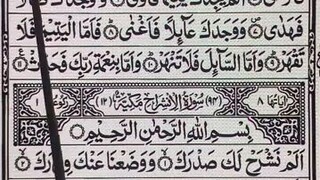 فَهَدٰى ۪﴿۷﴾ وَوَجَدَكَ عَآئِلًا فَاَغْنٰى ﴿۸﴾ فَاَمَّا الْيَتِيْمَ فَلَا
تَقْهَرْ ﴿۹﴾ وَاَمَّا السَّآئِلَ فَلَا تَنْهَرْ ﴿۱۰﴾ وَاَمَّا بِنِعْمَةِ رَبِّكَ فَحَدِّثْ ﴿۱۱﴾
اٰيَاتُهَا ۸ (۹۴) سُوْرَةُ الْاِنْشِرَاحِ مَكِّيَّةٌ (۱۲) رُكُوْعُهَا ۱
بِسْمِ اللّٰهِ الرَّحْمٰنِ الرَّحِيْمِ
اَلَمْ نَشْرَحْ لَكَ صَدْرَكَ ﴿۱﴾ وَوَضَعْنَا عَنْكَ وِزْرَكَ ﴿۲﴾